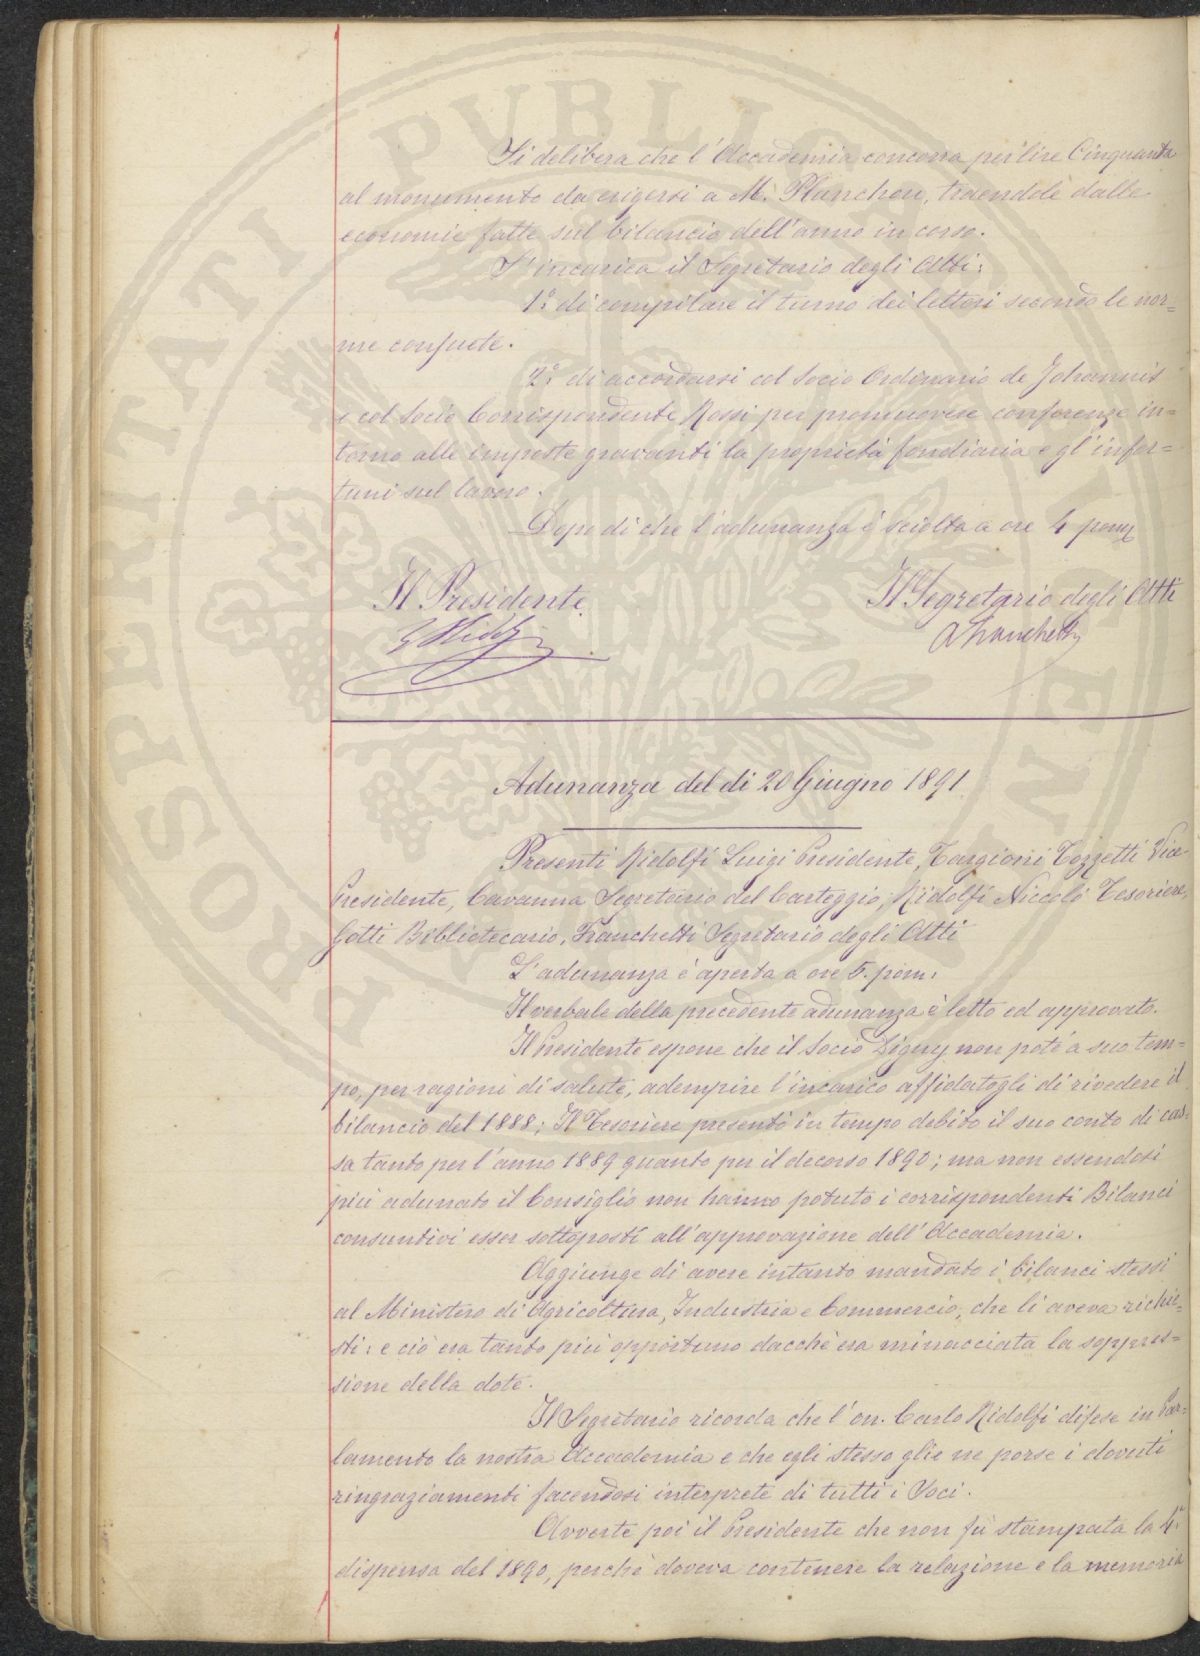 Si delibera che l'Accademia concorra per lire Cinquanta
al monumento da erigersi a Mr. Planchon, traendole dalle
economie fatte sul bilancio dell'anno in corso.
S'incarica il Segretario degli Atti:
1.° di compilare il turno dei lettori secondo le nor=
me consuete.
2.° di accordarsi col Socio Ordinario de Johannis
e col Socio Corrispondente Rossi per promuovere conferenze in=
torno alle imposte gravanti la proprietà fondiaria e gl'infor=
tuni sul lavoro.
Dopo di che l'adunanza è sciolta a ore 4 pom
Il Presidente
Il Segretario degli Atti
L Ridolfi
A Franchetti
Adunanza del dì 20 Giugno 1891
Presenti Ridolfi Luigi Presidente, Targioni Tozzetti Vice-
Presidente, Cavanna Segretario del Carteggio, Ridolfi Niccolò Tesoriere,
Gotti Bibliotecario, Franchetti Segretario degli Atti
L'adunanza è aperta a ore 5. pom.
Il verbale della precedente adunanza è letto ed approvato.
Il Presidente espone che il Socio Digny non poté a suo tem=
po, per ragioni di salute, adempire l'incarico affidatogli di rivedere il
bilancio del 1888; Il Tesoriere presentò in tempo debito il suo conto di cas=
sa tanto per l'anno 1889 quanto per il decorso 1890; ma non essendosi
più adunato il Consiglio non hanno potuto i corrispondenti Bilanci
consuntivi esser sottoposti all'approvazione dell'Accademia.
Aggiunge di avere intanto mandato i bilanci stessi
al Ministero di Agricoltura, Industria e Commercio, che li aveva richie=
sti: e ciò era tanto più opportuno dacchè era minacciata la soppres=
sione della dote.
Il Segretario ricorda che l'on. Carlo Ridolfi difese in Par=
lamento la nostra Accademia e che egli stesso glie ne porse i dovuti
ringraziamenti facendosi interprete di tutti i Soci.
Avverte poi il Presidente che non fu stampata la 4.ª
dispensa del 1890, perchè doveva contenere la relazione e la memoria
PROSPERITATI PUBLICAE AUGENDAE